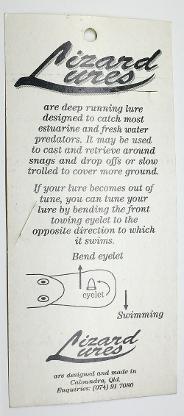 Lizard
Lures
are deep running lure
designed to catch most
estuarine and fresh water
predators. It may be used
to cast and retrieve around
snags and drop offs or slow
trolled to cover more ground.
If your lure becomes out of
tune, you can tune your
lure by bending the front
towing eyelet to the
opposite direction to which
it swims.
Bend eyelet
eyelet
Swimming
Lizard
Lures
are designed and made in
Caloundra, Qld.
Enquiries: (074) 91 7080